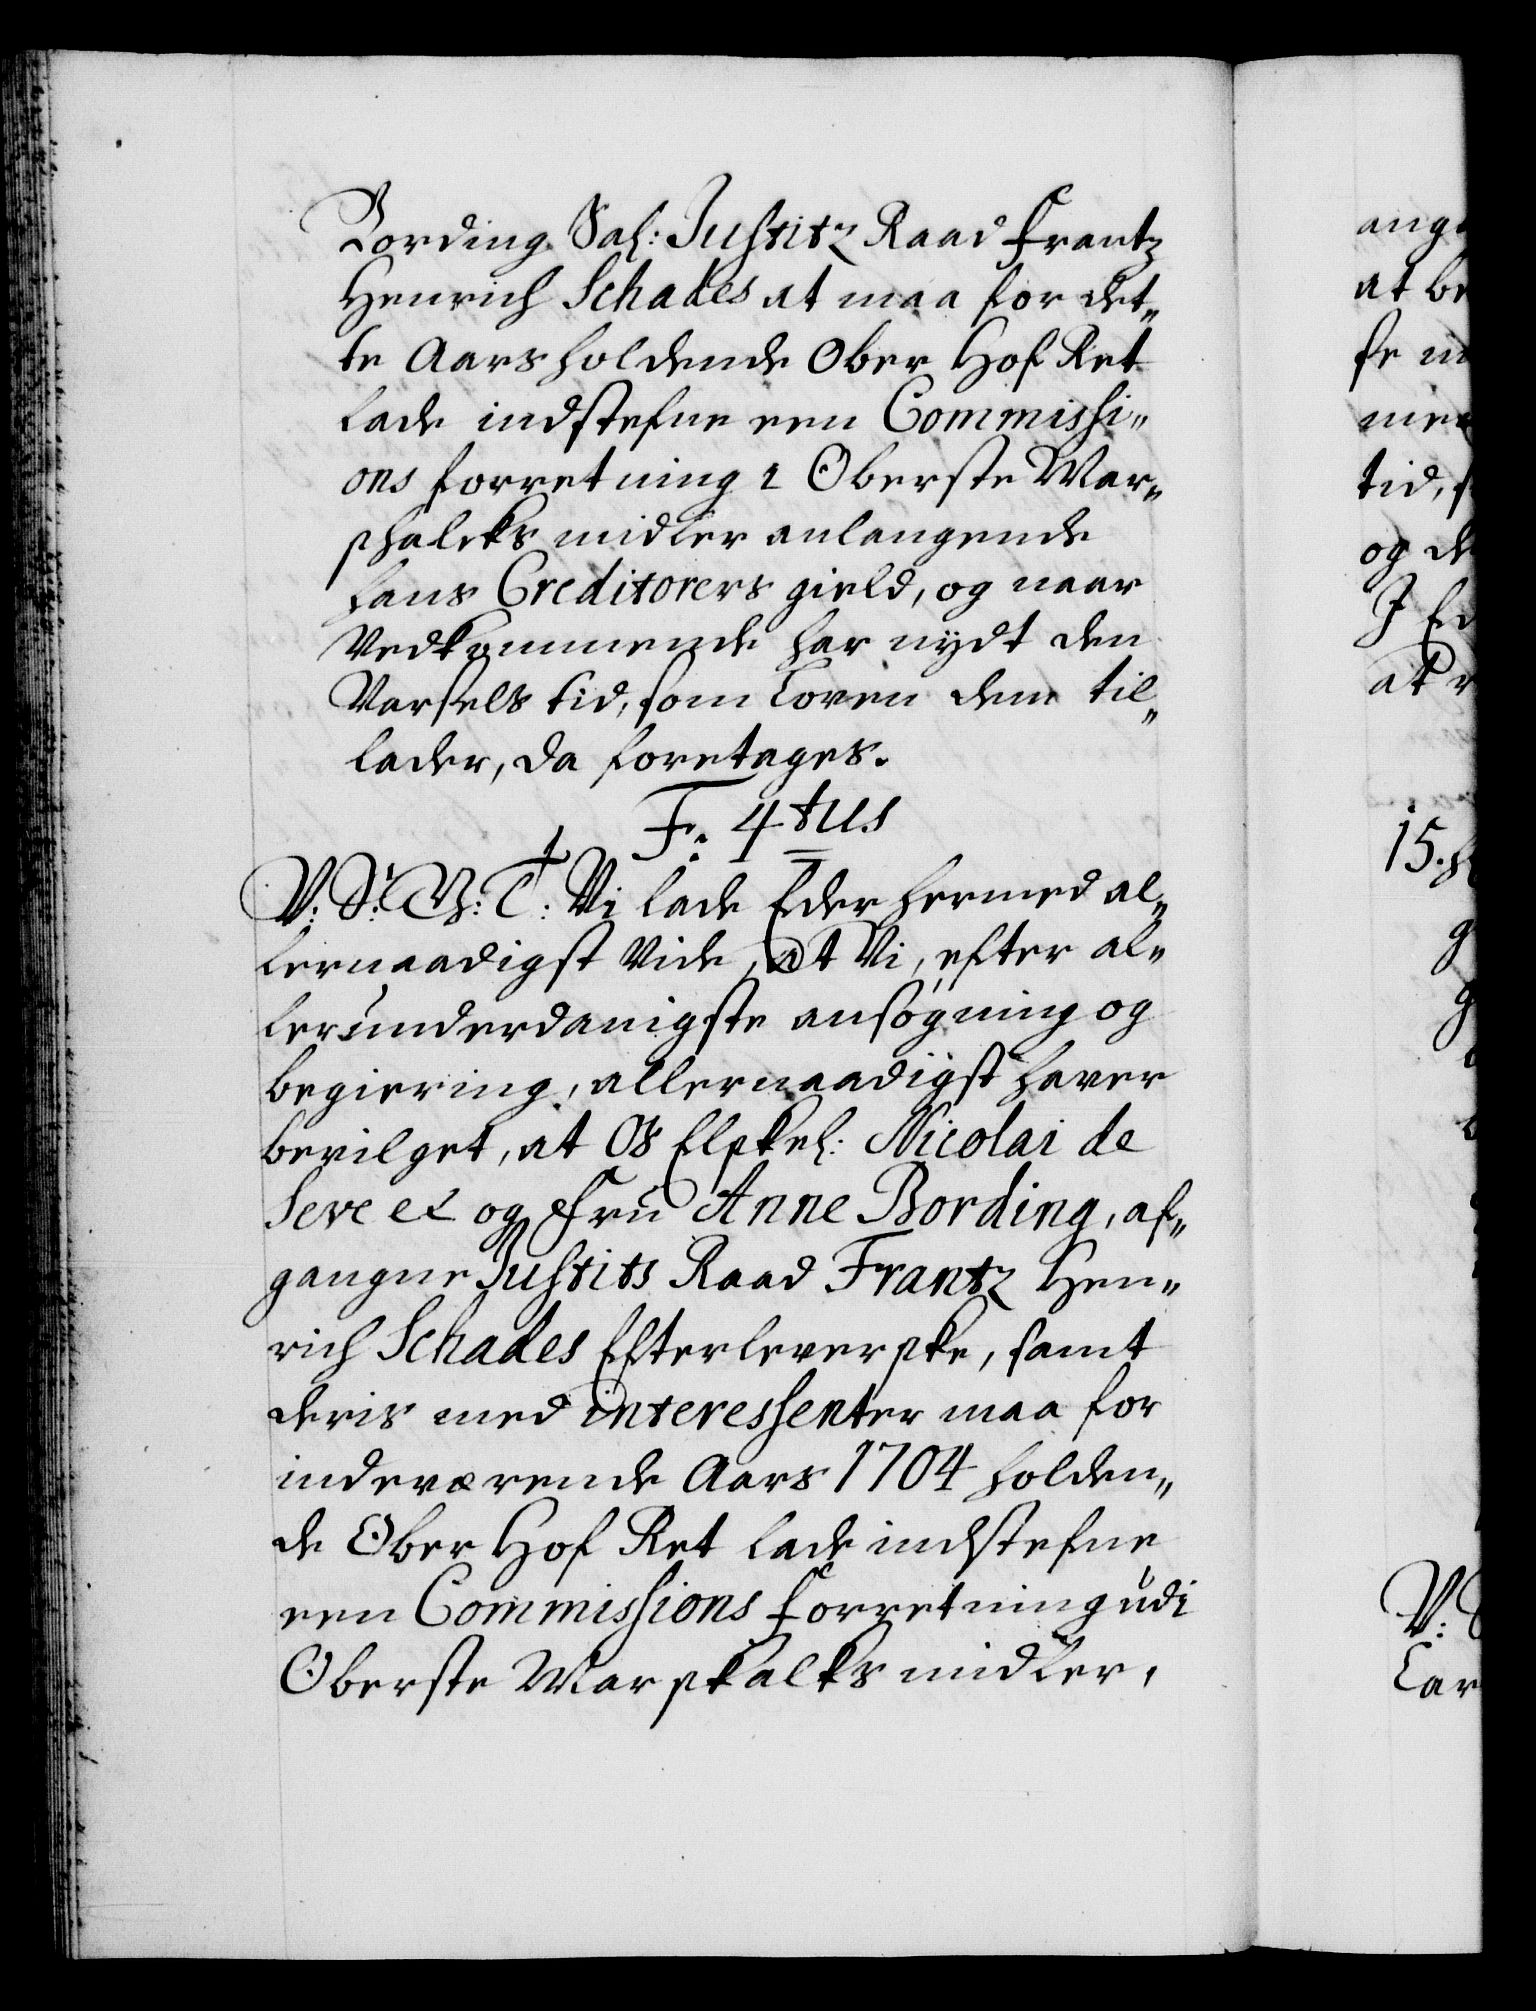 Bording Sal: Justitz Raad Frantz
Henrich Schades at maa for det„
te Aars holdende Ober Hof Ret
lade indstefne een Commissi„
ons forretning i Oberste Mar„
schalcks midler anlangende
hans Creditorers gield, og naar
Vedkommende har nydt den
Varsels tid, som Loven dem til„
lader, da foretages.
F. 4tus
V: S: G: T: Vi lade Eder hermed al„
lernaadigst vide, at Vi, efter al„
lerunderdanigste ansøgning og
begiering, allernaadigst haver
bevilget, at Os Elskel: Nicolai de
Seve et og Fru Anne Bording, af„
gangne Justits Raad Frantz Hen„
rich Schades Efterleverske, samt
deris med interessenter maa for
indeværende Aars 1704 holden„
de Ober Hof Ret lade indstefne
een Commissions Forretning udi
Oberste Marskalks midler,
ang
at be
se
tid,
og de
J Ed
at
15.
V: